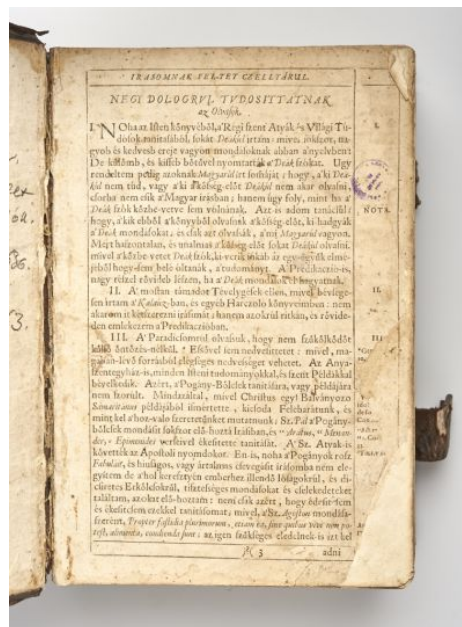 IRASOMNAK FEL-TET CZELLYÁRUL.
NEGI DOLOGRVL TVDOSITTATNAK
az Olvasók.
I. NOha az Isten könyvéből, a' Régi szent Atyák Világi Tu-
dósok tanításából, sokat Deákúl irtam: mivel
gyob és kedvesb ereje vagyon mondásoknak abban a' nyelvben:
De különb, és kisseb bötűvel nyomtatták a' Deák szókat. Ugy
rendeltem pedig azoknak Magyarúl irt forsáját; hogy, a' ki Deá-
kúl nem tud, vagy a' ki a' község-elöt Deákúl nem akar olvasni,
csorba nem esik a' Magyar irásban; hanem úgy foly, mint ha a'
Deák szók közbe-vetve sem vólnának. Azt-is adom tanácsúl:
hogy, a' kik ebből a' könyvből olvasnak a' község-elöt, ki-hadgyák
a' Deák mondásokat; és csak azt olvassák, a' mi Magyarúl vagyon.
Mert haszontalan, és unalmas a' község-elöt sokat Deákúl olvasni.
mivel a' közbe-vetet Deák szók, ki-verik inkáb az együgyük elmé-
jéből hogy-sem belé óltanák, a' tudományt. A' Prédikáczió-is,
nagy részzel rövideb lészen, ha a' Deák mondások el-hagyatnak.
II. A' mostan támadot Tévelygések-ellen, mivel bévsége-
sen irtam a' Kalauz-ban, és egyéb Harczoló könyveimben: nem
akarom itt kétszerezni irásimat; hanem azokrúl ritkán, és rövide-
den emlekezem a' Prédikáczióban.
III. A' Paradicsomrúl olvassuk, hogy nem szűkölködöt
külső öntözés-nélkűl. Essővel sem nedvesittetet: mivel, ma-
gában-lévő forrásból elégséges nedveséget vehetet. Az Anya-
szentegyház-is, minden Isteni tudományokkal, és szent Példákkal
bévelkedik. Azért, a' Pogány-Bölcsek tanitására, vagy példájára
nem szorúlt. Mindazáltal, mivel Christus egy Bálványozo
Samaritanus példájából ismértette, kicsoda Felebarátunk, és
mint kel a' hoz-való szeretetünket mutatnunk; Sz. Pál a' Pogány-
bölcsek mondásit sokszor elő-hozta Irásiban, és Aratus, Menan-
der, Epimenides verseivel ékesitette tanitását. A' Sz. Atyák-is
követték az Apostoli nyomdokot. En-is, noha a' Pogányok rosz
Fabuláit, és hiuságos, vagy ártalmas csevegésit irásomba nem ele-
gyitem de a' hol keresztyén emberhez illendő jóságokrúl, és di-
csíretes Erkölcsökrül, tisztességes mondásokat és cselekedeteket
találtam, azokat elő-hoztam: nem csak azért, hogy
és ékesitsem ezekkel tanitásomat; mivel, a' Sz. Ágoston mondása-
szerént, Propter fastidia plurimorum, etiam ea, sine quibus vivi non po-
test, alimenta, condienda sunt: az igen szükséges eledelnek-is izt kel
3
adni
I.
NOTA
II.
III